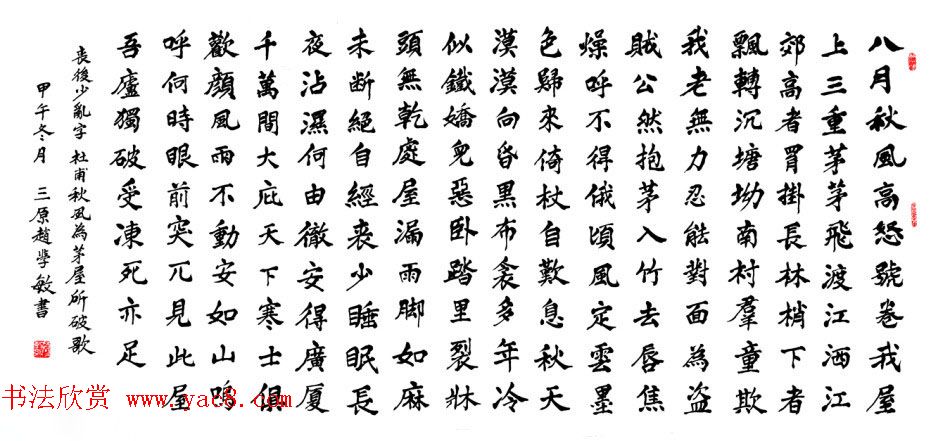 八月秋風高怒號卷我屋
上三重茅茅飛渡江洒江
郊高者罥掛長林梢下者
飄轉沉塘坳南村羣童欺
我老無力忍能對面為盜
賊公然抱茅入竹去唇焦
燥呼不得俄頃風定雲墨
色歸來倚杖自歎息秋天
漠漠向昏黑布衾多年冷
似鐵嬌皃惡卧踏里裂牀
頭無乾處屋漏雨脚如麻
未断絕自經喪少睡眠長
夜沾濕何由徹安得廣厦
千萬間大庇天下寒士俱
歡顔風雨不動安如山嗚
呼何時眼前突兀見此屋
吾廬獨破受凍死亦足
喪後少亂字 杜甫秋風為茅屋所破歌
甲午冬月 三原趙學敏書
书法欣赏 www.yac8.com